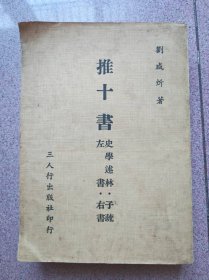 劉咸炘著
推十書
史學述林·子疏
左書·右書
三人行出版社印行